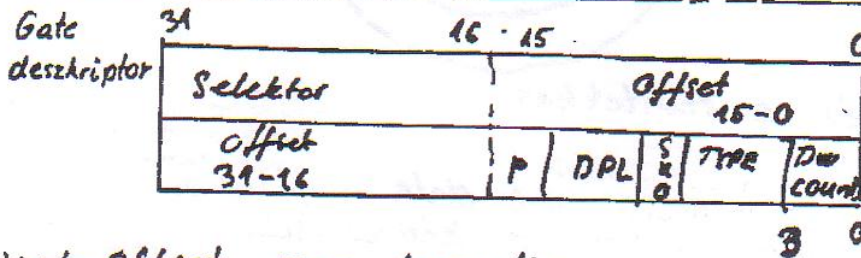 Gate
deszkriptor
31 16 · 15 0
Selektor
Offset
15-0
Offset
31-16
P
DPL
S
TYPE
Dw
count
0